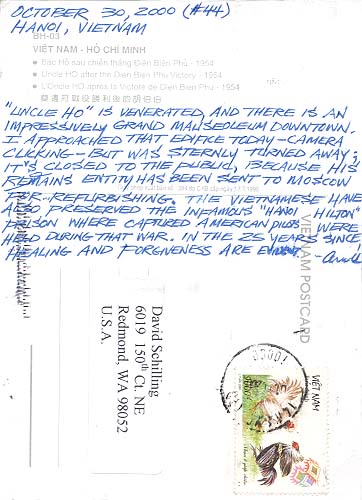 OCTOBER 30, 2000 (#44)
HANOI, VIETNAM
BH-03
VIỆT NAM - HỒ CHÍ MINH
● Bác Hồ sau chiến thắng Điện Biên Phủ - 1954
● Uncle HO after the Dien Bien Phu Victory - 1954
● L'Oncle HO après la Victoire de Dien Bien Phu - 1954
"UNCLE HO" IS VENERATED, AND THERE IS AN
IMPRESSIVELY GRAND MAUSEOLEUM DOWNTOWN.
I APPROACHED THAT EDIFICE TODAY—CAMERA
CLICKING—BUT WAS STERNLY TURNED AWAY;
IT'S CLOSED TO THE PUBLIC, BECAUSE HIS
REMAINS ENTITY HAS BEEN SENT TO MOSCOW
FOR REFURBISHING. THE VIETNAMESE HAVE
ALSO PRESERVED THE INFAMOUS "HANOI HILTON"
PRISON WHERE CAPTURED AMERICAN PILOTS WERE
HELD DURING THAT WAR. IN THE 25 YEARS SINCE
HEALING AND FORGIVENESS ARE EVIDENT.
VIETNAM POSTCARD
David Schilling
6019 150th Ct. NE
Redmond, WA 98052
U.S.A.
VIỆT NAM